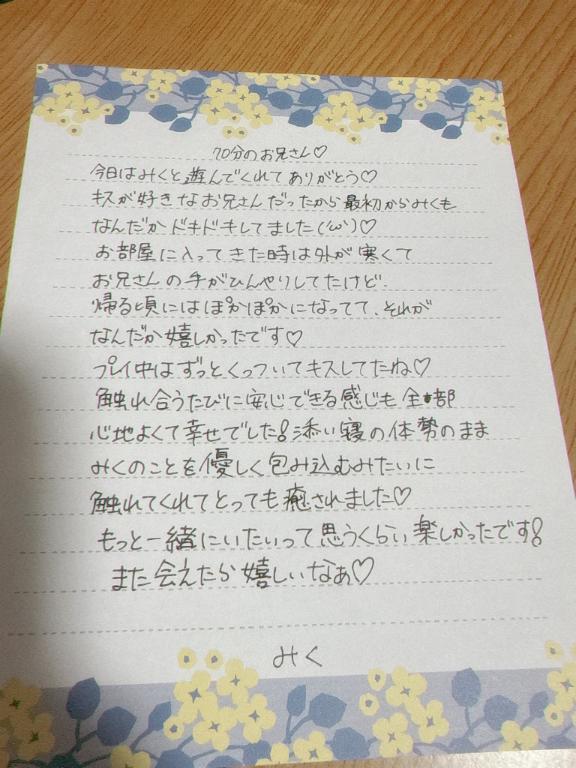 70分のお兄さん♡
今日はみくと遊んでくれてありがとう♡
キスが好きなお兄さんだったから最初からみくも
なんだかドキドキしてました(/ω\)♡
お部屋に入ってきた時は外が寒くて
お兄さんの手がひんやりしてたけど、
帰る頃にはぽかぽかになってて、それが
なんだか嬉しかったです♡
プレイ中はずっとくっついてキスしてたね♡
触れ合うたびに安心できる感じも全部
心地よくて幸せでした!添い寝の体勢のまま
みくのことを優しく包み込むみたいに
触れてくれてとっても癒されました♡
もっと一緒にいたいって思うくらい楽しかったです!
また会えたら嬉しいなぁ♡
みく